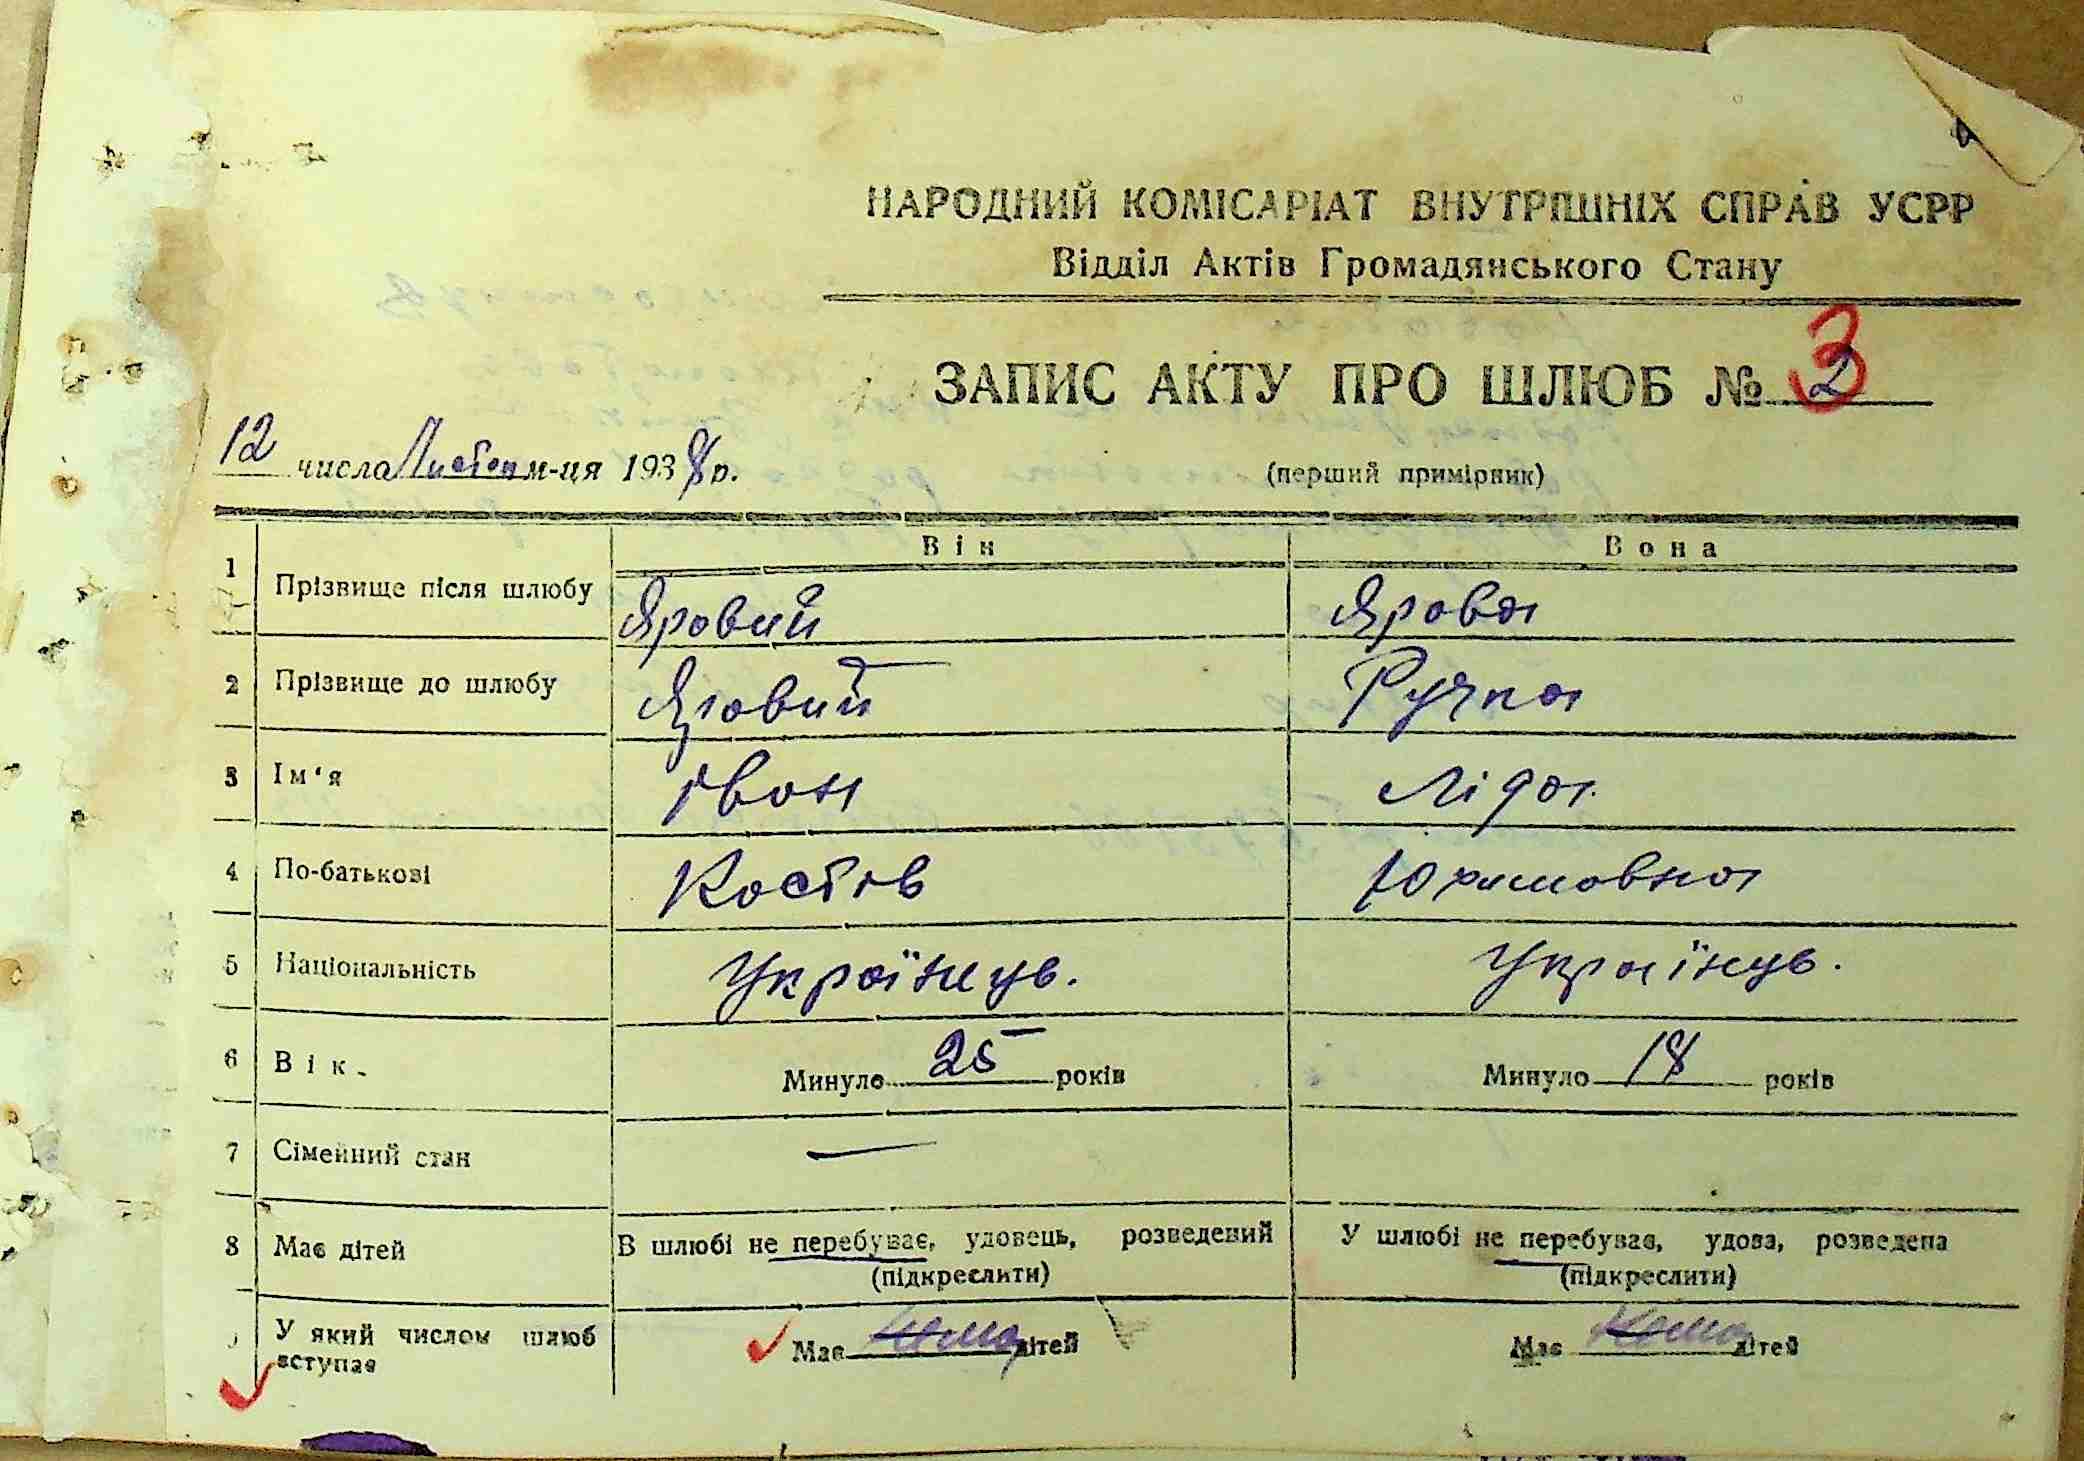 НАРОДНИЙ КОМІСАРІАТ ВНУТРІШНІХ СПРАВ УСРР
Відділ Актів Громадянського Стану
ЗАПИС АКТУ ПРО ШЛЮБ № 2 3
12 числа м-ця 1938 р.
(перший примірник)
Він Вона
1 Прізвище після шлюбу Яровий Ярова
2 Прізвище до шлюбу Яровий Ручка
3 Ім'я Іван Ліда
4 По-батькові Костів Юхимовна
5 Національність Українць. Українць.
6 Вік. Минуло 25 років Минуло 18 років
7 Сімейний стан —
8 Має дітей В шлюбі не перебуває, удовець, розведений У шлюбі не перебуває, удова, розведена
(підкреслити) (підкреслити)
У який числом шлюб вступає Має нема дітей Має нема дітей